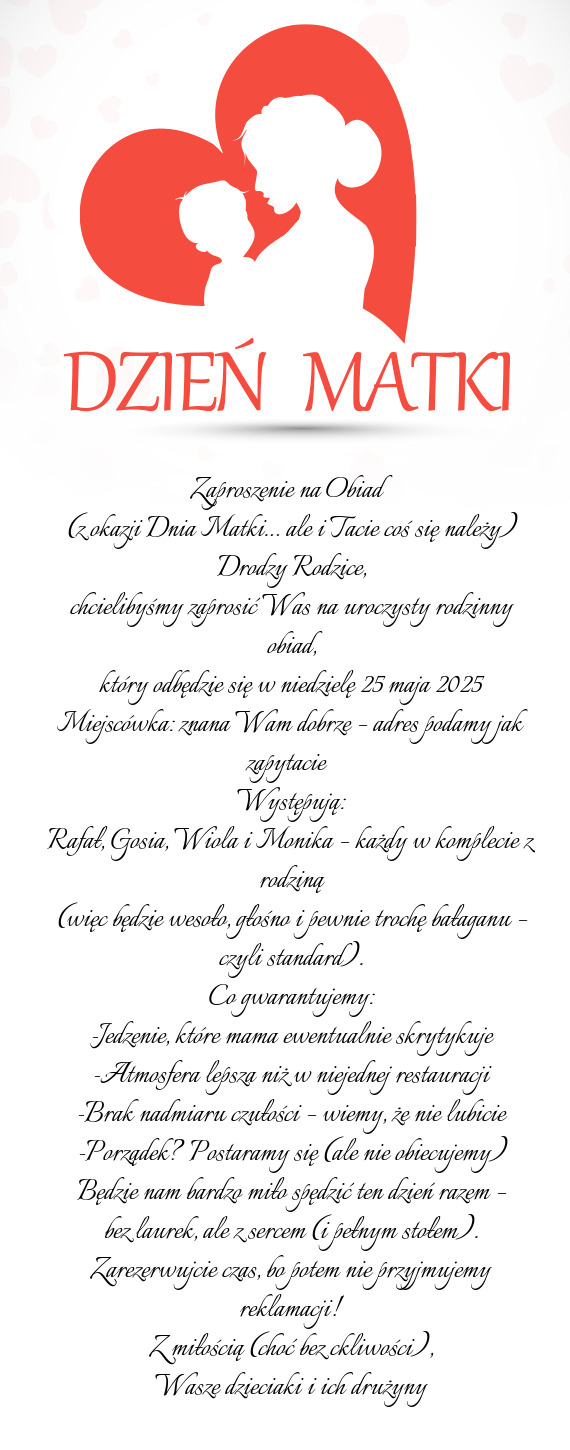 DZIEŃ MATKI
Zaproszenie na Obiad
(z okazji Dnia Matki... ale i Tacie coś się należy)
Drodzy Rodzice,
chcielibyśmy zaprosić Was na uroczysty rodzinny
obiad,
który odbędzie się w niedzielę 25 maja 2025
Miejscówka: znana Wam dobrze – adres podamy jak
zapytacie
Występują:
Rafał, Gosia, Wiola i Monika – każdy w komplecie z
rodziną
(więc będzie wesoło, głośno i pewnie trochę bałaganu –
czyli standard).
Co gwarantujemy:
-Jedzenie, które mama ewentualnie skrytykuje
-Atmosfera lepsza niż w niejednej restauracji
-Brak nadmiaru czułości – wiemy, że nie lubicie
-Porządek? Postaramy się (ale nie obiecujemy)
Będzie nam bardzo miło spędzić ten dzień razem –
bez laurek, ale z sercem (i pełnym stołem).
Zarezerwujcie czas, bo potem nie przyjmujemy
reklamacji!
Z miłością (choć bez ckliwości),
Wasze dzieciaki i ich drużyny